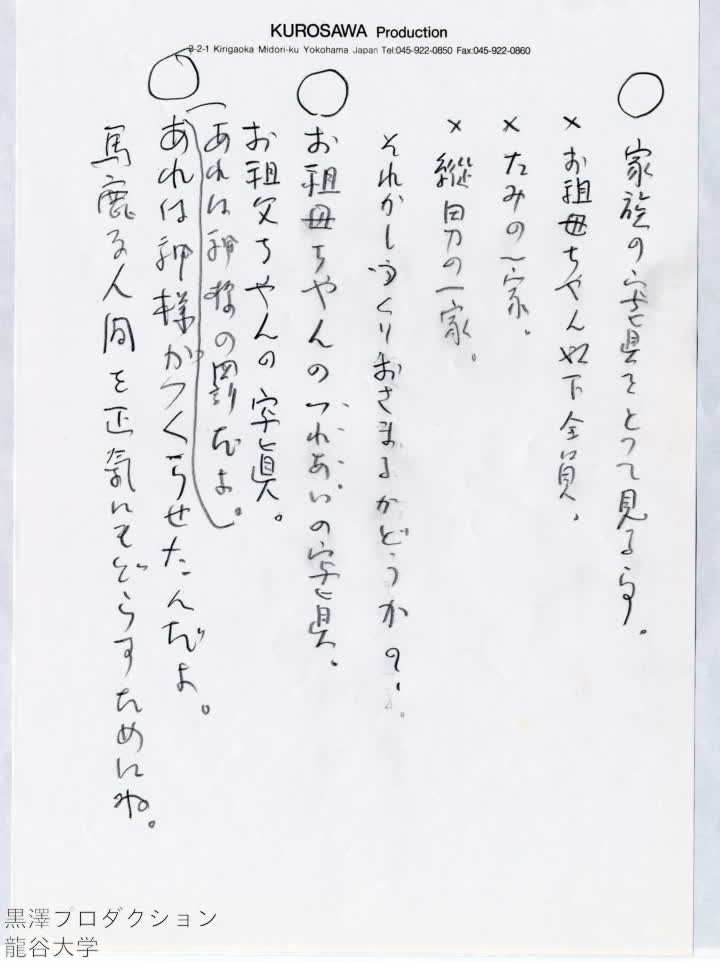 KUROSAWA Production
3-2-1 Kirigaoka Midori-ku Yokohama Japan Tel:045-922-0850 Fax:045-922-0860
○
家族の寫真をとって見る事。
× お祖母ちゃん以下全員。
× たみの一家。
× 縦男の一家。
それがしっくりおさまるかどうか?
○
お祖母ちゃんのつれあいの写真。
お祖父ちゃんの写真。
(あれは神様の罰だよ。)
○
あれは神様がつくらせたんだよ。
馬鹿な人間を正氣にもどらすためにね。
黒澤プロダクション
龍谷大学